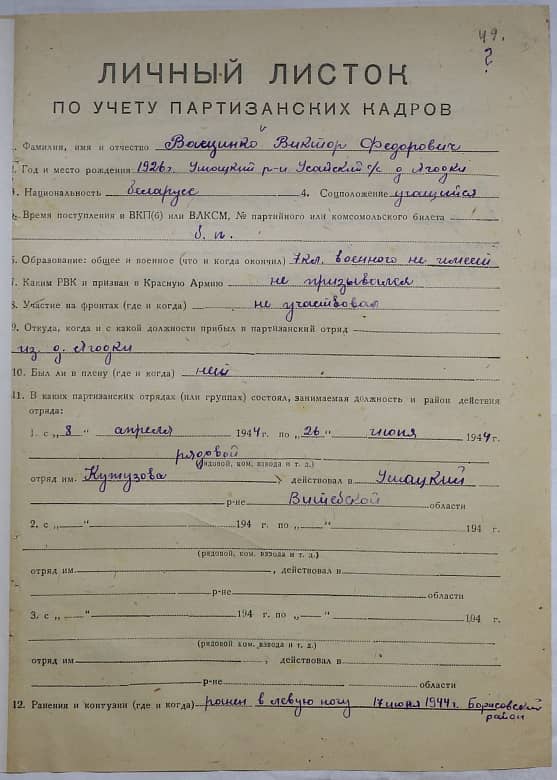 49.
?
ЛИЧНЫЙ ЛИСТОК
ПО УЧЕТУ ПАРТИЗАНСКИХ КАДРОВ
1. Фамилия, имя и отчество Васцинко Виктор Федорович
2. Год и место рождения 1926 г. Ушацкий р-н Усайский с/с д. Ягодки
3. Национальность беларусс 4. Соцположение учащийся
5. Время поступления в ВКП(б) или ВЛКСМ, № партийного или комсомольского билета
б. п.
6. Образование: общее и военное (что и когда окончил) 7 кл. военного не имеет
7. Каким РВК и призван в Красную Армию не призывался
8. Участие на фронтах (где и когда) не участвовал
9. Откуда, когда и с какой должности прибыл в партизанский отряд
из д. Ягодки
10. Был ли в плену (где и когда) ней
11. В каких партизанских отрядах (или группах) состоял, занимаемая должность и район действия
отряда:
1. с „8“ апреля 1944 г. по „26“ июня 1944 г.
рядовой
(рядовой, ком. взвода и т. д.)
отряд им. Кутузова, действовал в Ушацкий
р-не Витебской области
2. с „ “ 194 г. по „ “ 194 г.
(рядовой, ком. взвода и т. д.)
отряд им. , действовал в
р-не области
3. с „ “ 194 г. по „ “ 194 г.
(рядовой, ком. взвода и т. д.)
отряд им. , действовал в
р-не области
12. Ранения и контузии (где и когда) ранен в левую ногу 17 июня 1944 г. Борисовский
район